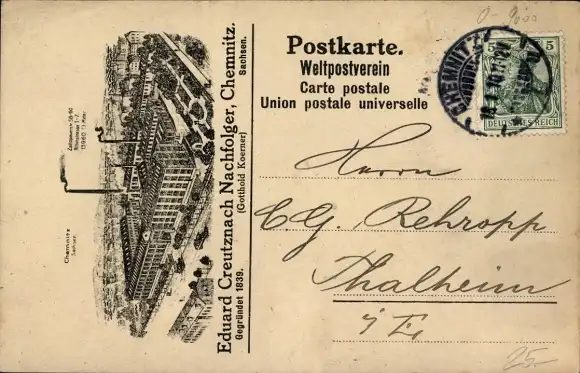 Postkarte.
Weltpostverein
Carte postale
Union postale universelle
CHEMNITZ
5 5
DEUTSCHES REICH
Herrn
C. G. Rehropp
Thalheim
i/E
25.-
Eduard Creutznach Nachfolger, Chemnitz.
Gegründet 1839. (Gotthold Koerner) Sachsen.
Chemnitz
Sachsen.